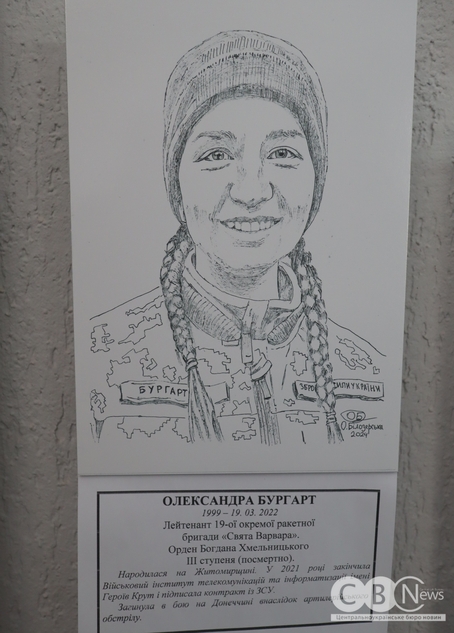 БУРГАРТ
ЗБРО ИЛИ УКРАЇНИ
О.Білозірська
2024
ОЛЕКСАНДРА БУРГАРТ
1999 – 19. 03. 2022
Лейтенант 19-ої окремої ракетної
бригади «Свята Варвара».
Орден Богдана Хмельницького
ІІІ ступеня (посмертно).
Народилася на Житомирщині. У 2021 році закінчила
Військовий інститут телекомунікацій та інформатизації імені
Героїв Крут і підписала контракт із ЗСУ.
Загинула в бою на Донеччині внаслідок
обстрілу.
CBN News
Центральноукраїнське бюро новин